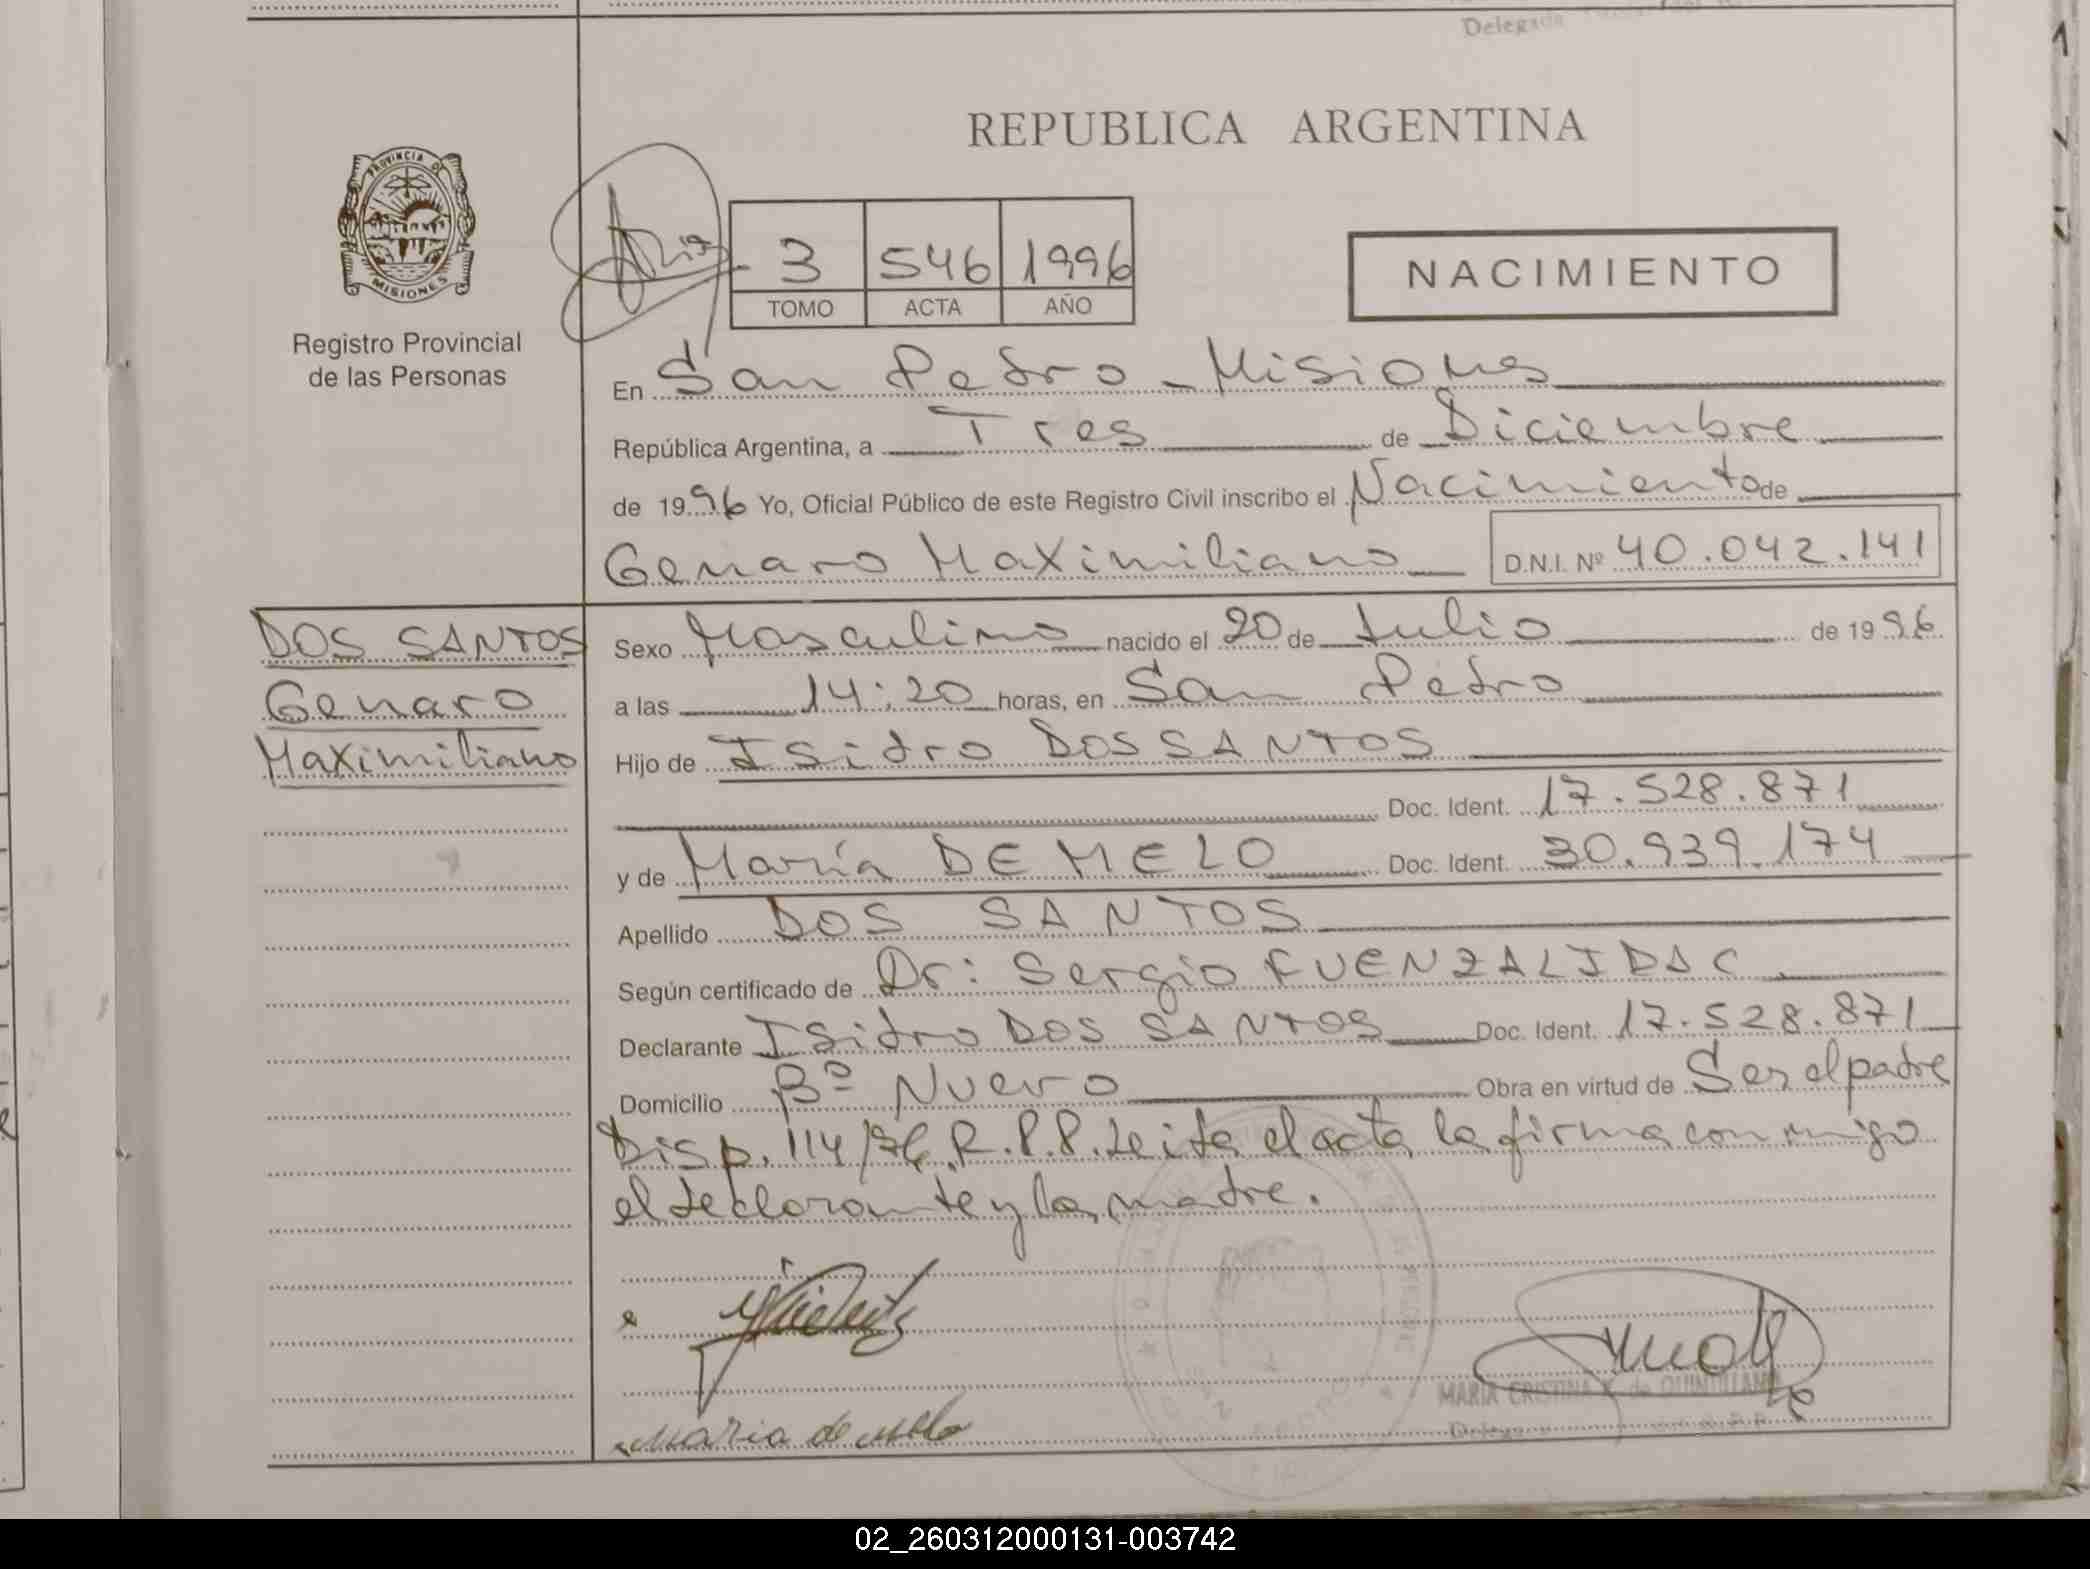 Delegada
REPUBLICA ARGENTINA
PROVINCIA DE
MISIONES
Registro Provincial
de las Personas
3 546 1996
TOMO ACTA AÑO
NACIMIENTO
En San Pedro - Misiones
República Argentina, a Tres de Diciembre
de 1996 Yo, Oficial Público de este Registro Civil inscribo el Nacimiento de
Genaro Maximiliano D.N.I. Nº 40.042.141
DOS SANTOS
Genaro
Maximiliano
Sexo Masculino nacido el 20 de Julio de 1996
a las 14:20 horas, en San Pedro
Hijo de Isidro DOS SANTOS
Doc. Ident. 17.528.871
y de María DE MELO Doc. Ident. 30.939.174
Apellido DOS SANTOS
Según certificado de Dr: Sergio FUENZALIDA C
Declarante Isidro DOS SANTOS Doc. Ident. 17.528.871
Domicilio Bº Nuevo Obra en virtud de Ser el padre
Disp. 114/96 R.P.P. Leida el acta la firma con migo
el declarante y la madre.
Maria de melo
MARIA CRISTINA K. de QUINTILLANA
02_260312000131-003742